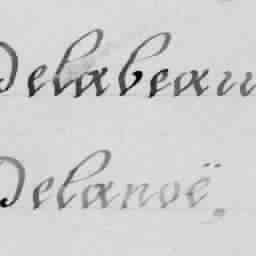 Delabeau
Delanoë.